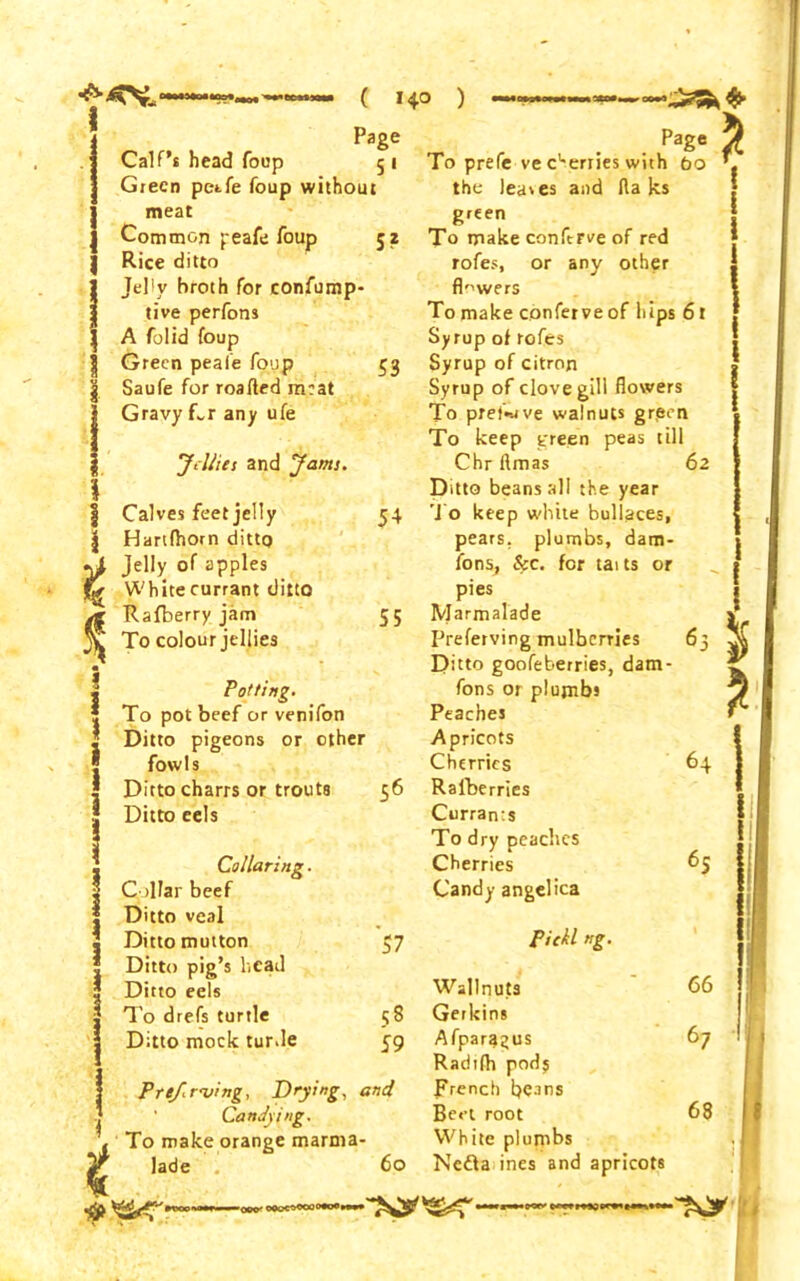 ( 140 )
Page
Calf's head ſoup 51
Green peaſe ſoup without
meat
Common peaſe ſoup 52
Rice ditto
Jelly broth for conſump-
tive perſons
A ſolid ſoup
Green peaſe ſoup 53
Sauſe for roaſted meat
Gravy for any uſe
Jellies and Jams.
Calves feet jelly 54
Hartſhorn ditto
Jelly of apples
White currant ditto
Raſberry jam 55
To colour jellies
Potting.
To pot beef or veniſon
Ditto pigeons or other
fowls
Ditto charrs or trouts 56
Ditto eels
Collaring.
Collar beef
Ditto veal
Ditto mutton 57
Ditto pig's head
Ditto eels
To dreſs turtle 58
Ditto mock turtle 59
Preſerving, Drying, and
Candying.
To make orange marma-
lade 60
Page
To preſerve cherries with 60
the leaves and ſtalks
green
To make conſerve of red
roſes, or any other
flowers
To make conſerve of hips 61
Syrup of roſes
Syrup of citron
Syrup of clove gill flowers
To preſerve walnuts green
To keep green peas till
Chriſtmas 62
Ditto beans all the year
To keep white bullaces,
pears, plumbs, dam-
ſons, &c. for tarts or
pies
Marmalade
Preſerving mulberries 63
Ditto gooſeberries, dam-
ſons or plumbs
Peaches
Apricots
Cherries 64
Raſberries
Currants
To dry peaches
Cherries 65
Candy angelica
Pickling.
Wallnuts 66
Gerkins
Aſparagus 67
Radiſh pods
French beans
Beet root 68
White plumbs
Nectarines and apricots